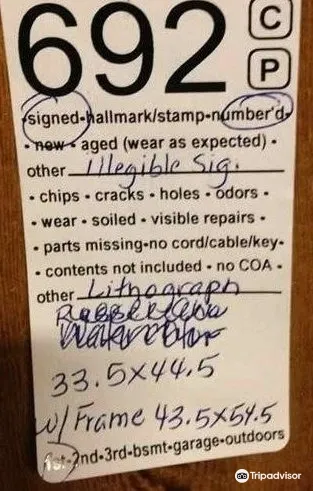 692 C
P
•signed•hallmark/stamp•number'd•
• new • aged (wear as expected) •
other Illegible Sig.
• chips • cracks • holes • odors •
• wear • soiled • visible repairs •
• parts missing•no cord/cable/key•
• contents not included • no COA •
other Lithograph
Watercolor
33.5x44.5
w/ Frame 43.5x54.5
1st•2nd•3rd•bsmt•garage•outdoors
Tripadvisor